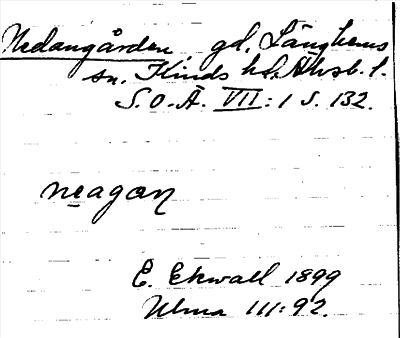 Nedangården, gd, Länghems
sn. Kinds hd. Älvsb. l.
S.O.Ä. VII: 1 S. 132.
neagan
E. Ekwall 1899
Ulma 111:92.